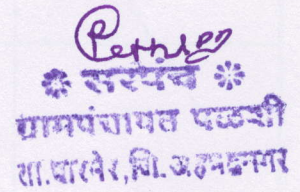 सरपंच
ग्रामपंचायत पळशी
ता.पारनेर, जि. अहमदनगर